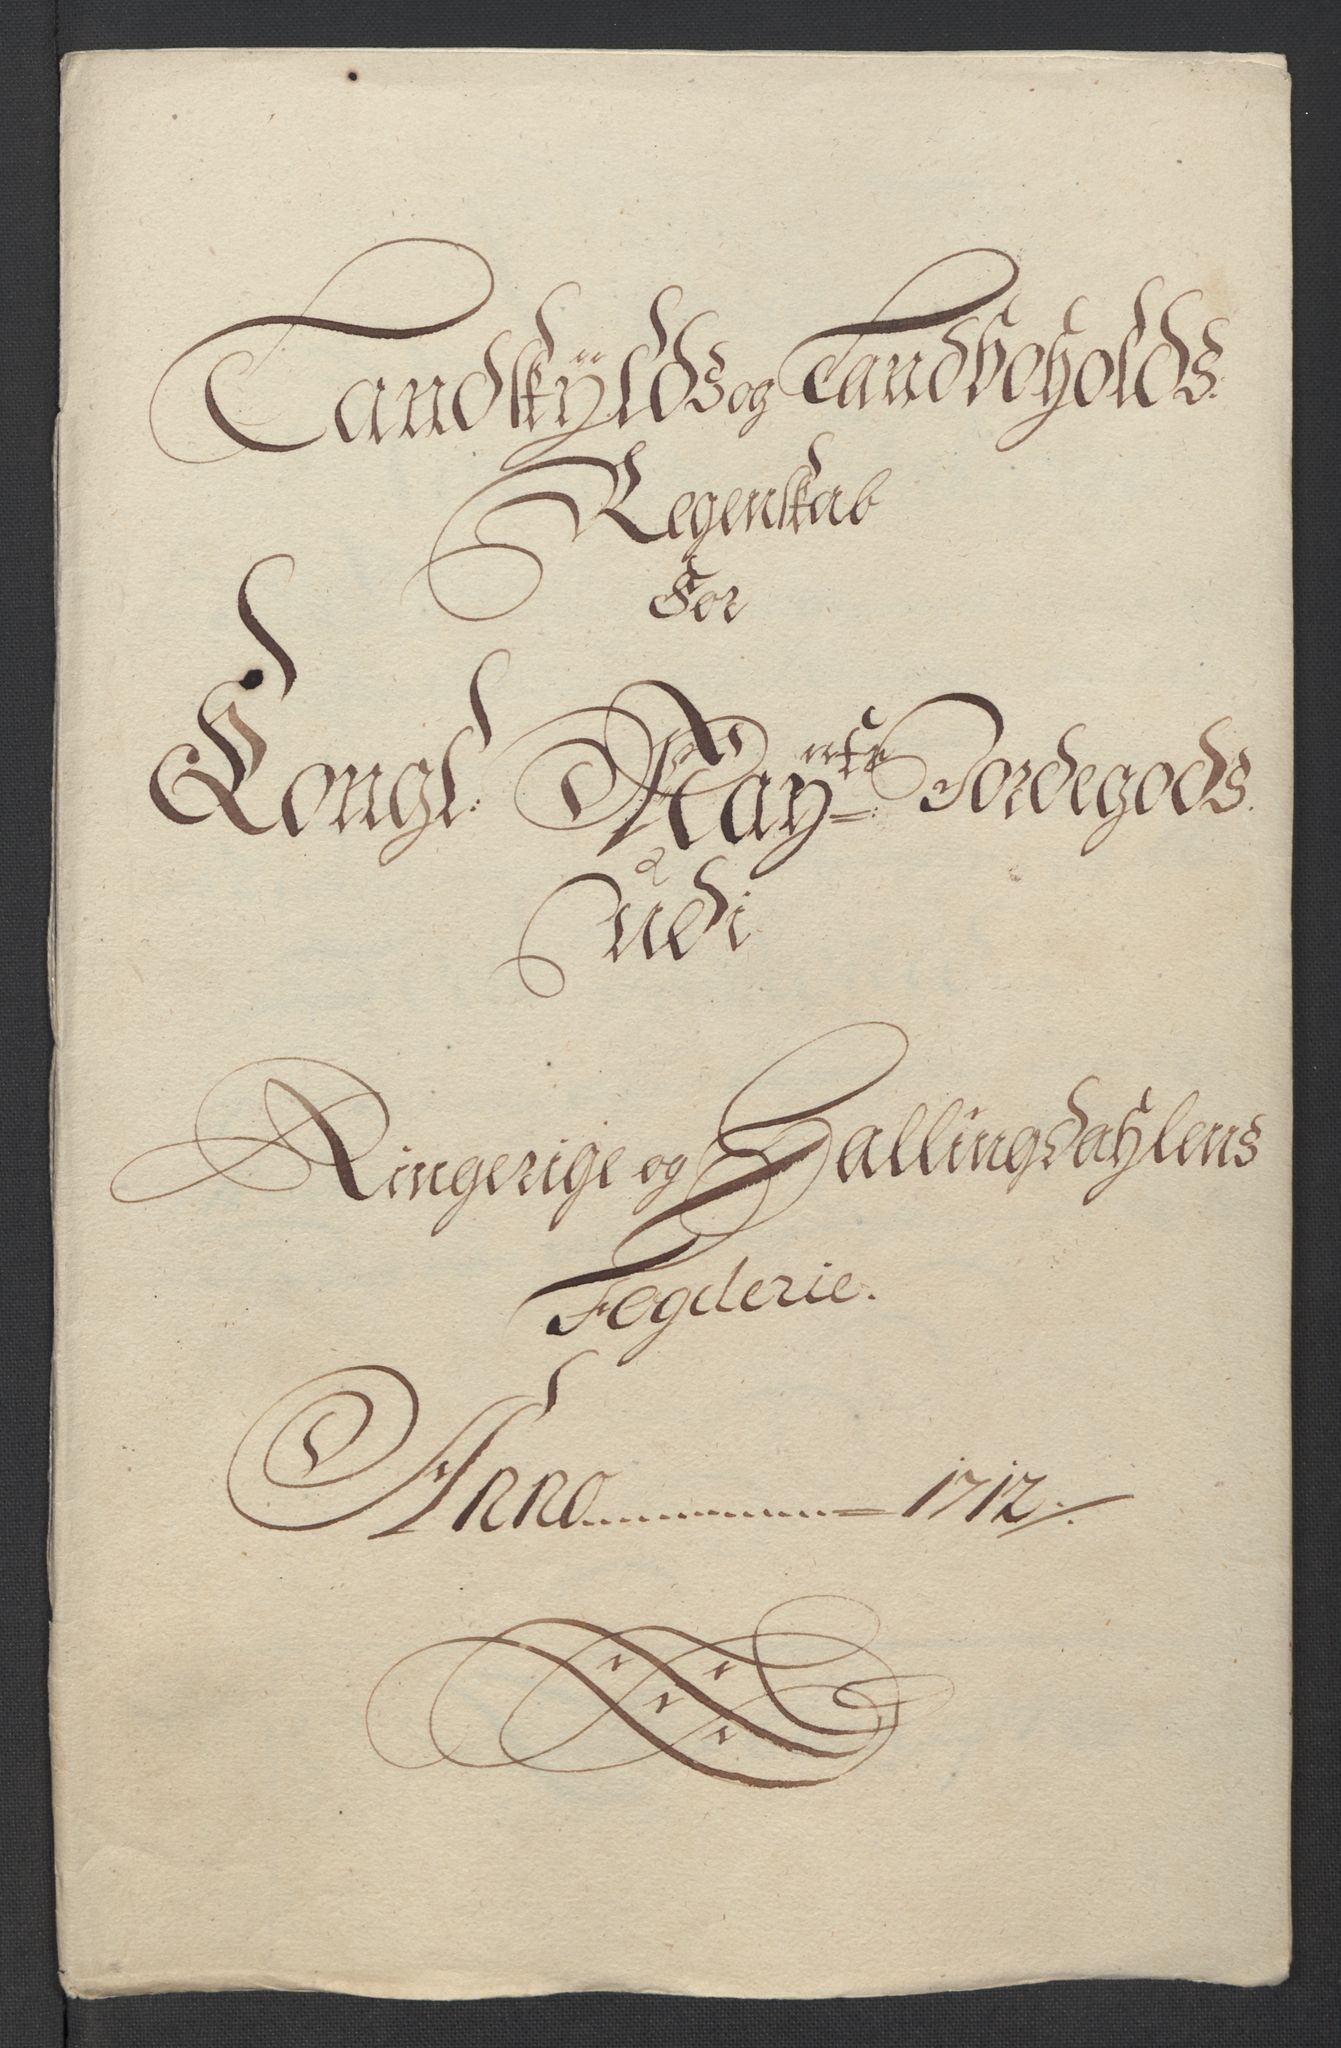 Landskÿlds og Landboholds
Regenskab
for
Kongl: Mayts: Jordegods
Udi
Ringerige og Hallingdahlens
Fogderie.
Anno 1712.